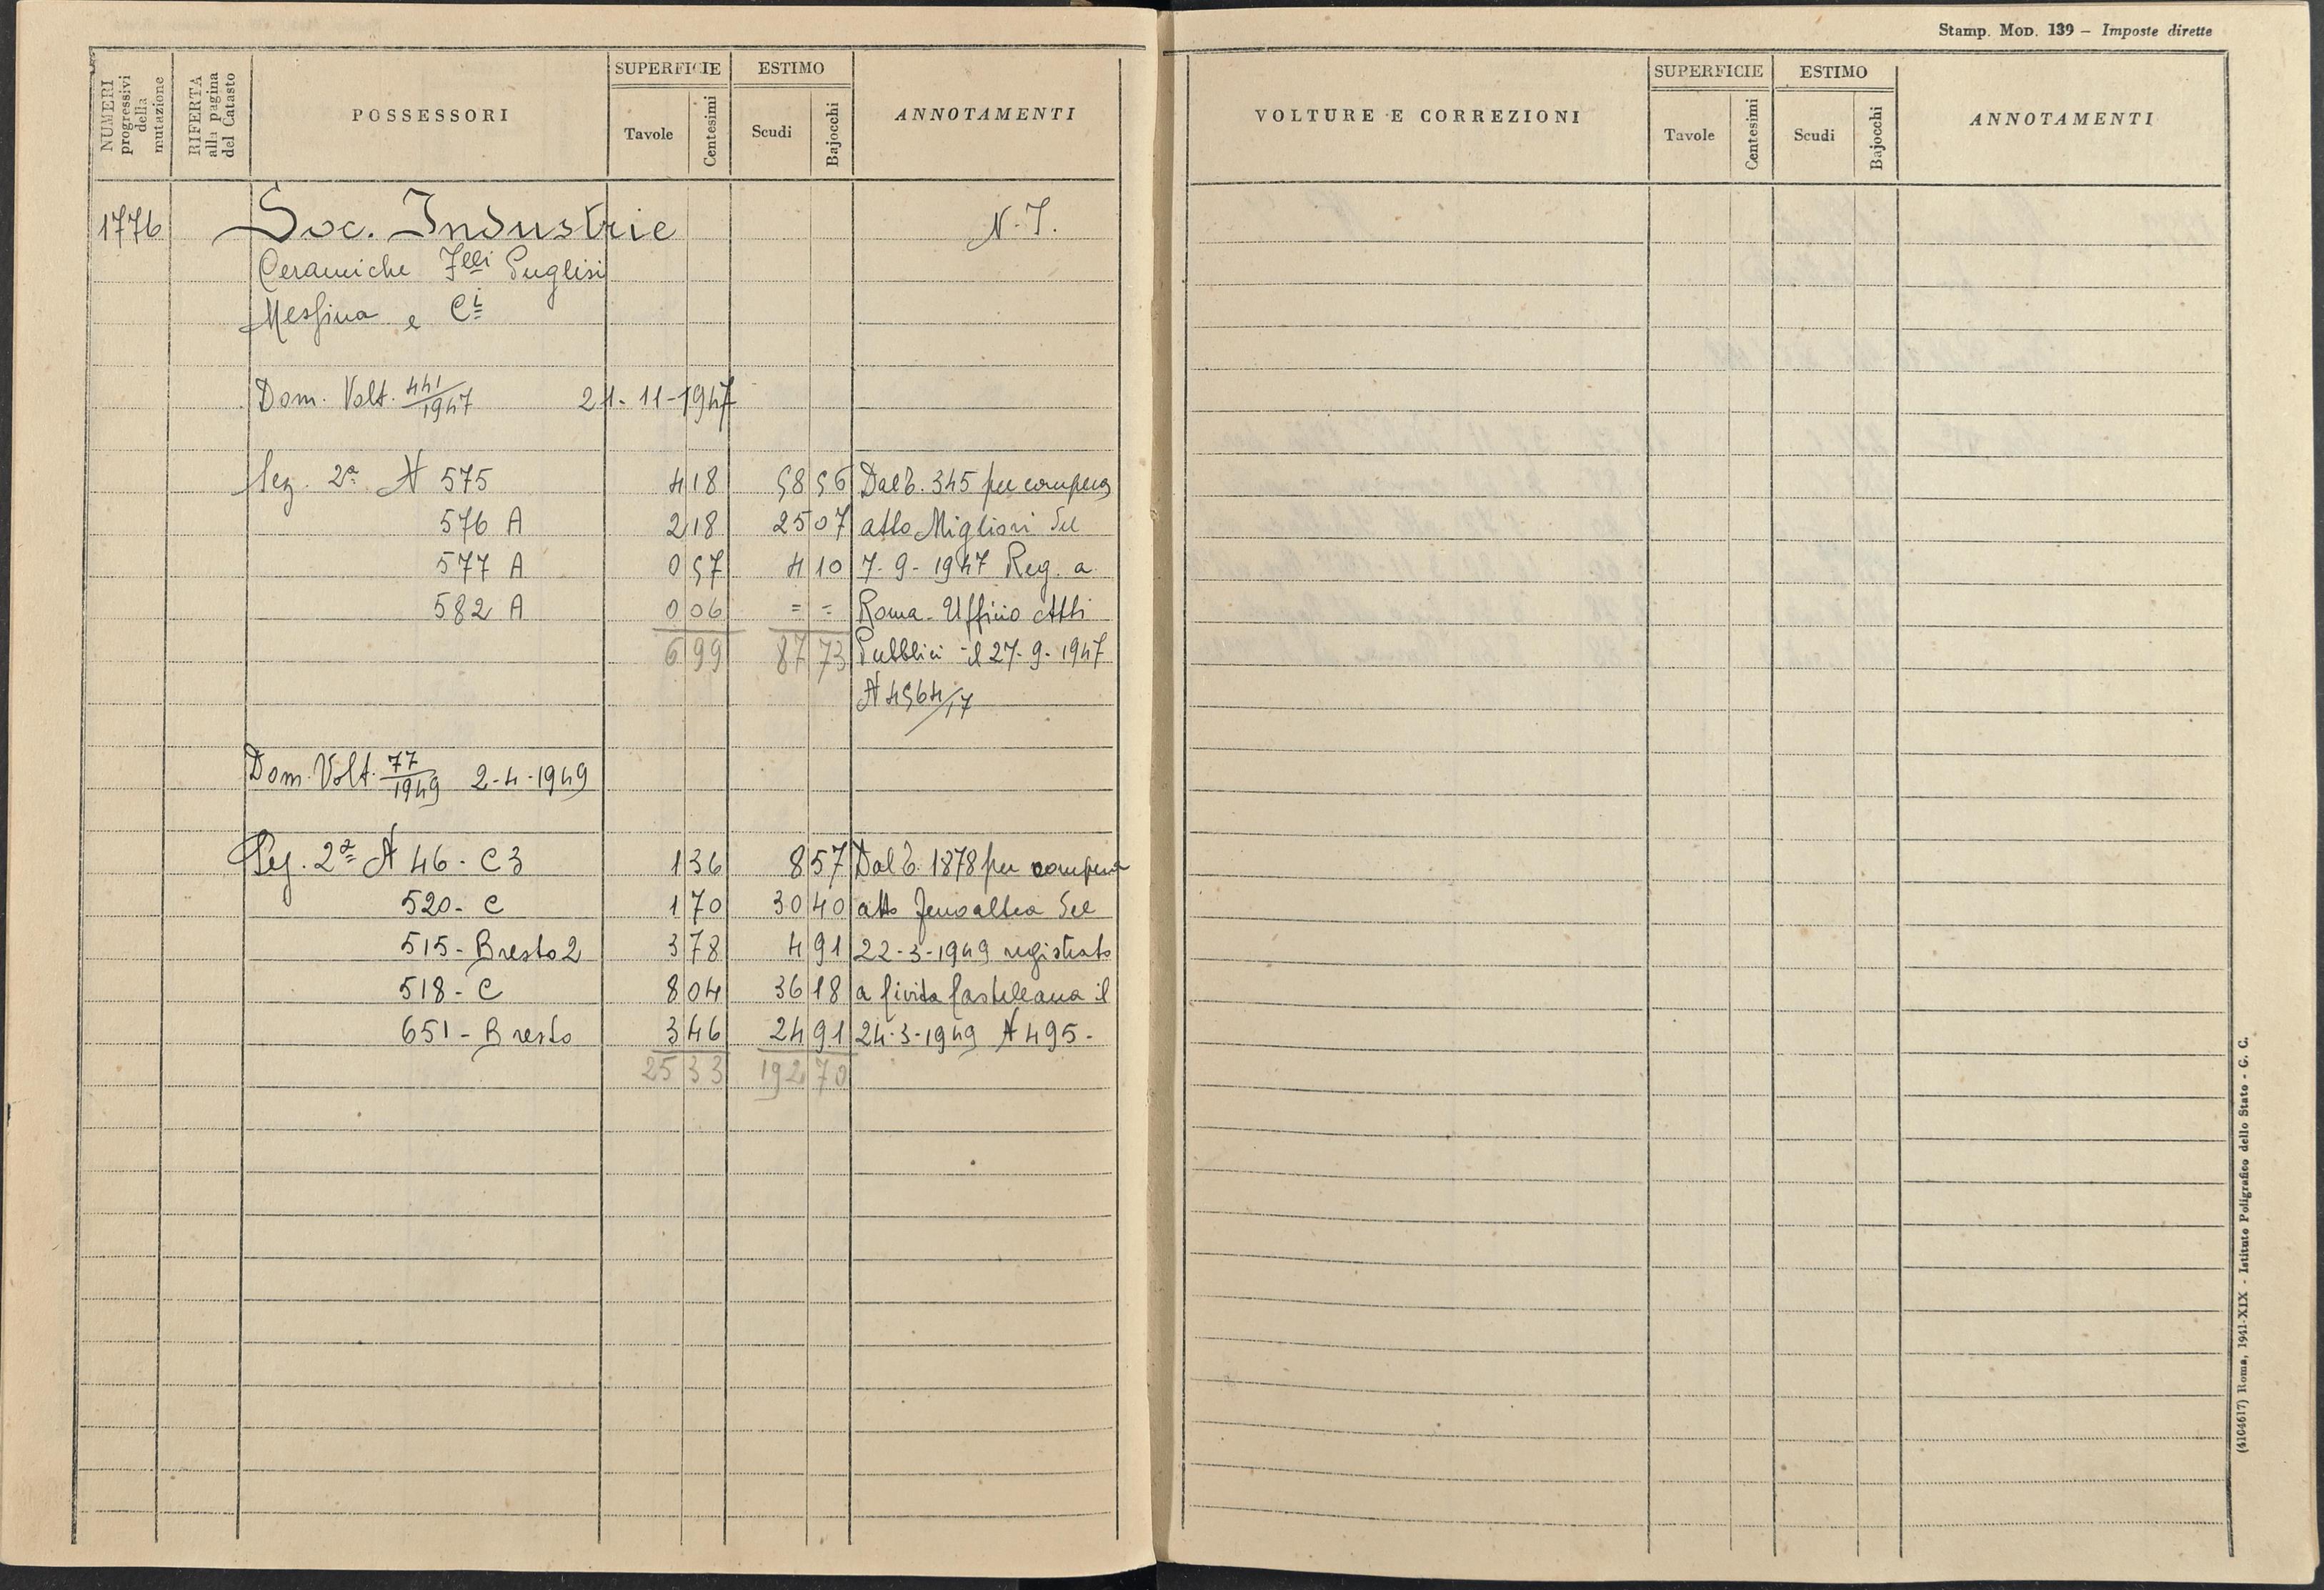 Stamp. Mod. 139 – Imposte dirette
NUMERI progressivi della mutazione
RIFERTA alla pagina del Catasto
POSSESSORI
SUPERFICIE
Tavole
Centesimi
ESTIMO
Scudi
Bajocchi
ANNOTAMENTI
VOLTURE E CORREZIONI
SUPERFICIE
Tavole
Centesimi
ESTIMO
Scudi
Bajocchi
ANNOTAMENTI
1776 Soc. Industrie N.I.
Ceramiche Flli Puglisi
Messina e Ci
Dom. Volt. 441/1947 21-11-1947
Sez. 2a N 575 4 18 58 56 Dal b. 345 per compera
576 A 2 18 25 07 atto Migliori del
577 A 0 57 4 10 7-9-1947 Reg. a
582 A 0 06 = = Roma-Ufficio Atti
6 99 87 73 Pubblici il 27-9-1947
N 4564/17
Dom. Volt. 77/1949 2-4-1949
Sez. 2a N 46-C3 1 36 8 57 Dal b. 1878 per compera
520-C 1 70 30 40 atto Jenoaltea del
515-B resto 2 3 78 4 91 22-3-1949 registrato
518-C 8 04 36 18 a Civita Castellana il
651-B resto 3 46 24 91 24-3-1949 N 495-
25 33 192 70
(4104617) Roma, 1941-XIX - Istituto Poligrafico dello Stato - G. C.